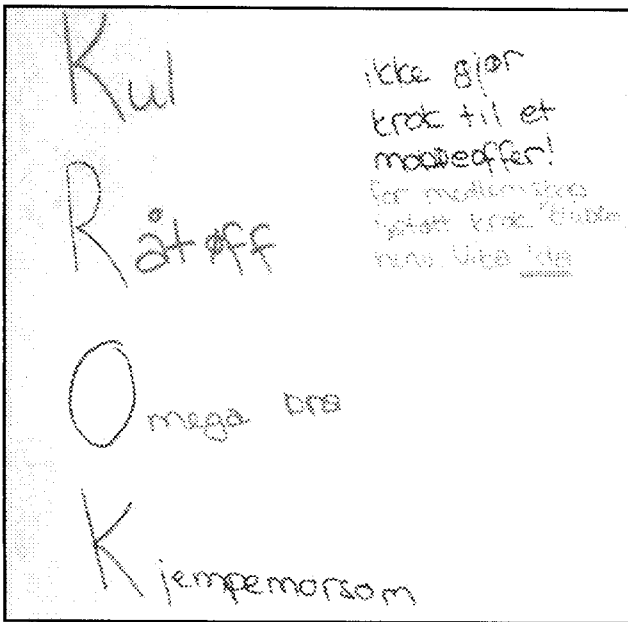 Kul
Råtøff
Omega bra
Kjempemorsom
ikke gjør
krok til et
mobbeoffer!
for medlemskap
krok
Ida